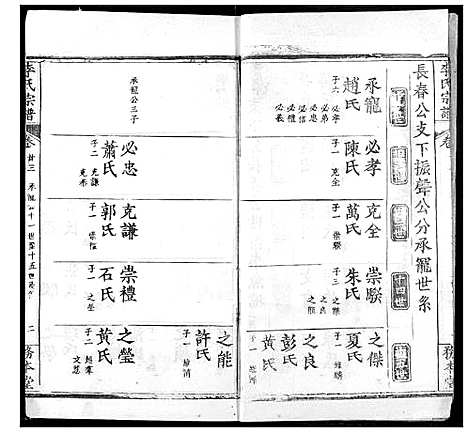 李氏宗譜
卷
務本堂
長春公支下振聲公分承寵世系
承寵
趙氏
子六
必孝
必弟
必忠
必信
必禮
必義
必孝
陳氏
子一
克全
克全
萬氏
子一
崇騤
崇騤
朱氏
子三
之傑
之良
之能
之傑
夏氏
子一
之良
彭氏
黃氏
子一
之能
許氏
子一
承寵公三子
必忠
蕭氏
子二
克謙
克謙
郭氏
子一
崇禮
崇禮
石氏
子一
之瑩
之瑩
黃氏
子二
李氏宗譜
卷
廿三
承寵
十一世至十五世
二
務本堂